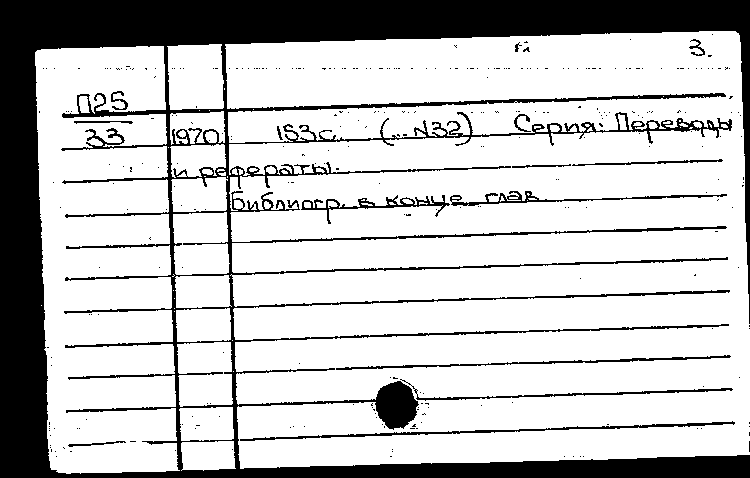 3.
П25
33 1970 153с. (...N32) Серия: Переводы
и рефераты.
Библиогр. в конце глав